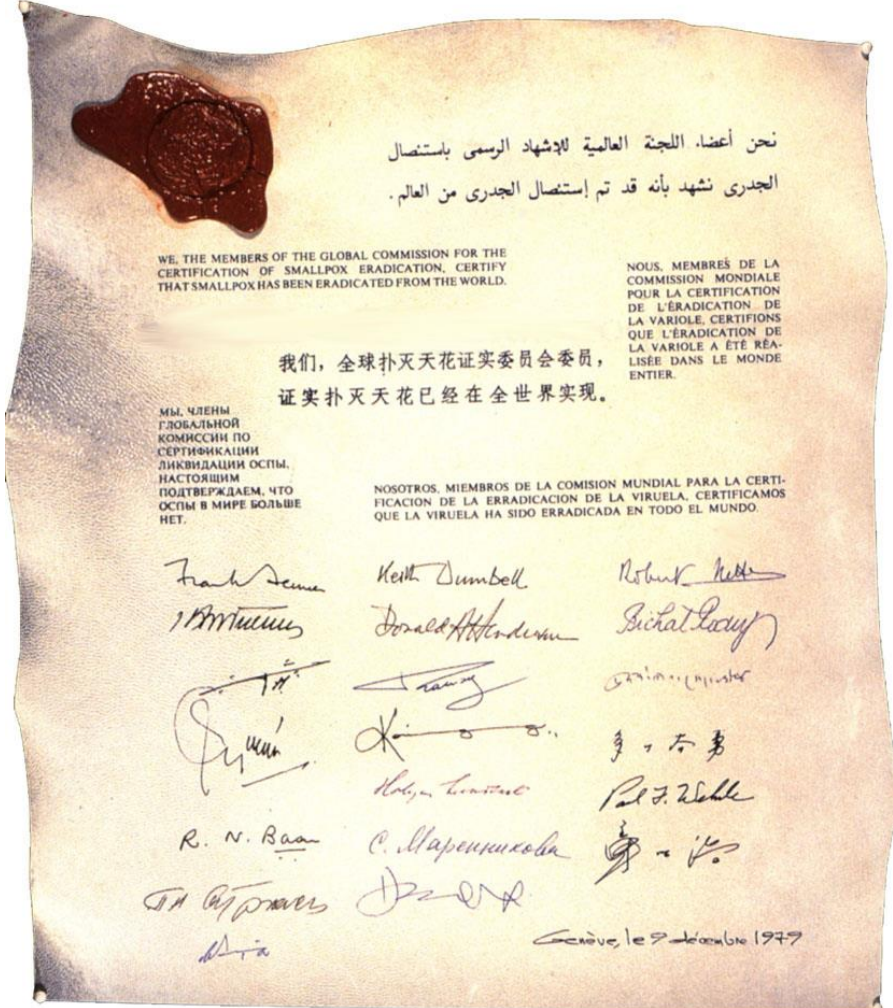 نحن أعضاء اللجنة العالمية للإشهاد الرسمى باستئصال
الجدرى نشهد بأنه قد تم إستئصال الجدرى من العالم.
WE, THE MEMBERS OF THE GLOBAL COMMISSION FOR THE
CERTIFICATION OF SMALLPOX ERADICATION, CERTIFY
THAT SMALLPOX HAS BEEN ERADICATED FROM THE WORLD.
NOUS, MEMBRES DE LA
COMMISSION MONDIALE
POUR LA CERTIFICATION
DE L'ÉRADICATION DE
LA VARIOLE, CERTIFIONS
QUE L'ÉRADICATION DE
LA VARIOLE A ÉTÉ RÉA-
LISÉE DANS LE MONDE
ENTIER.
我们，全球扑灭天花证实委员会委员，
证实扑灭天花已经在全世界实现。
МЫ, ЧЛЕНЫ
ГЛОБАЛЬНОЙ
КОМИССИИ ПО
СЕРТИФИКАЦИИ
ЛИКВИДАЦИИ ОСПЫ,
НАСТОЯЩИМ
ПОДТВЕРЖДАЕМ, ЧТО
ОСПЫ В МИРЕ БОЛЬШЕ
НЕТ.
NOSOTROS, MIEMBROS DE LA COMISION MUNDIAL PARA LA CERTI-
FICACION DE LA ERRADICACION DE LA VIRUELA, CERTIFICAMOS
QUE LA VIRUELA HA SIDO ERRADICADA EN TODO EL MUNDO.
Frank Fenner Keith Dumbell Robert Netter
Donald A Henderson Bichat Rodrigues
Paul F. Wehrle
R. N. Basu С. Маренникова
Genève, le 9 décembre 1979